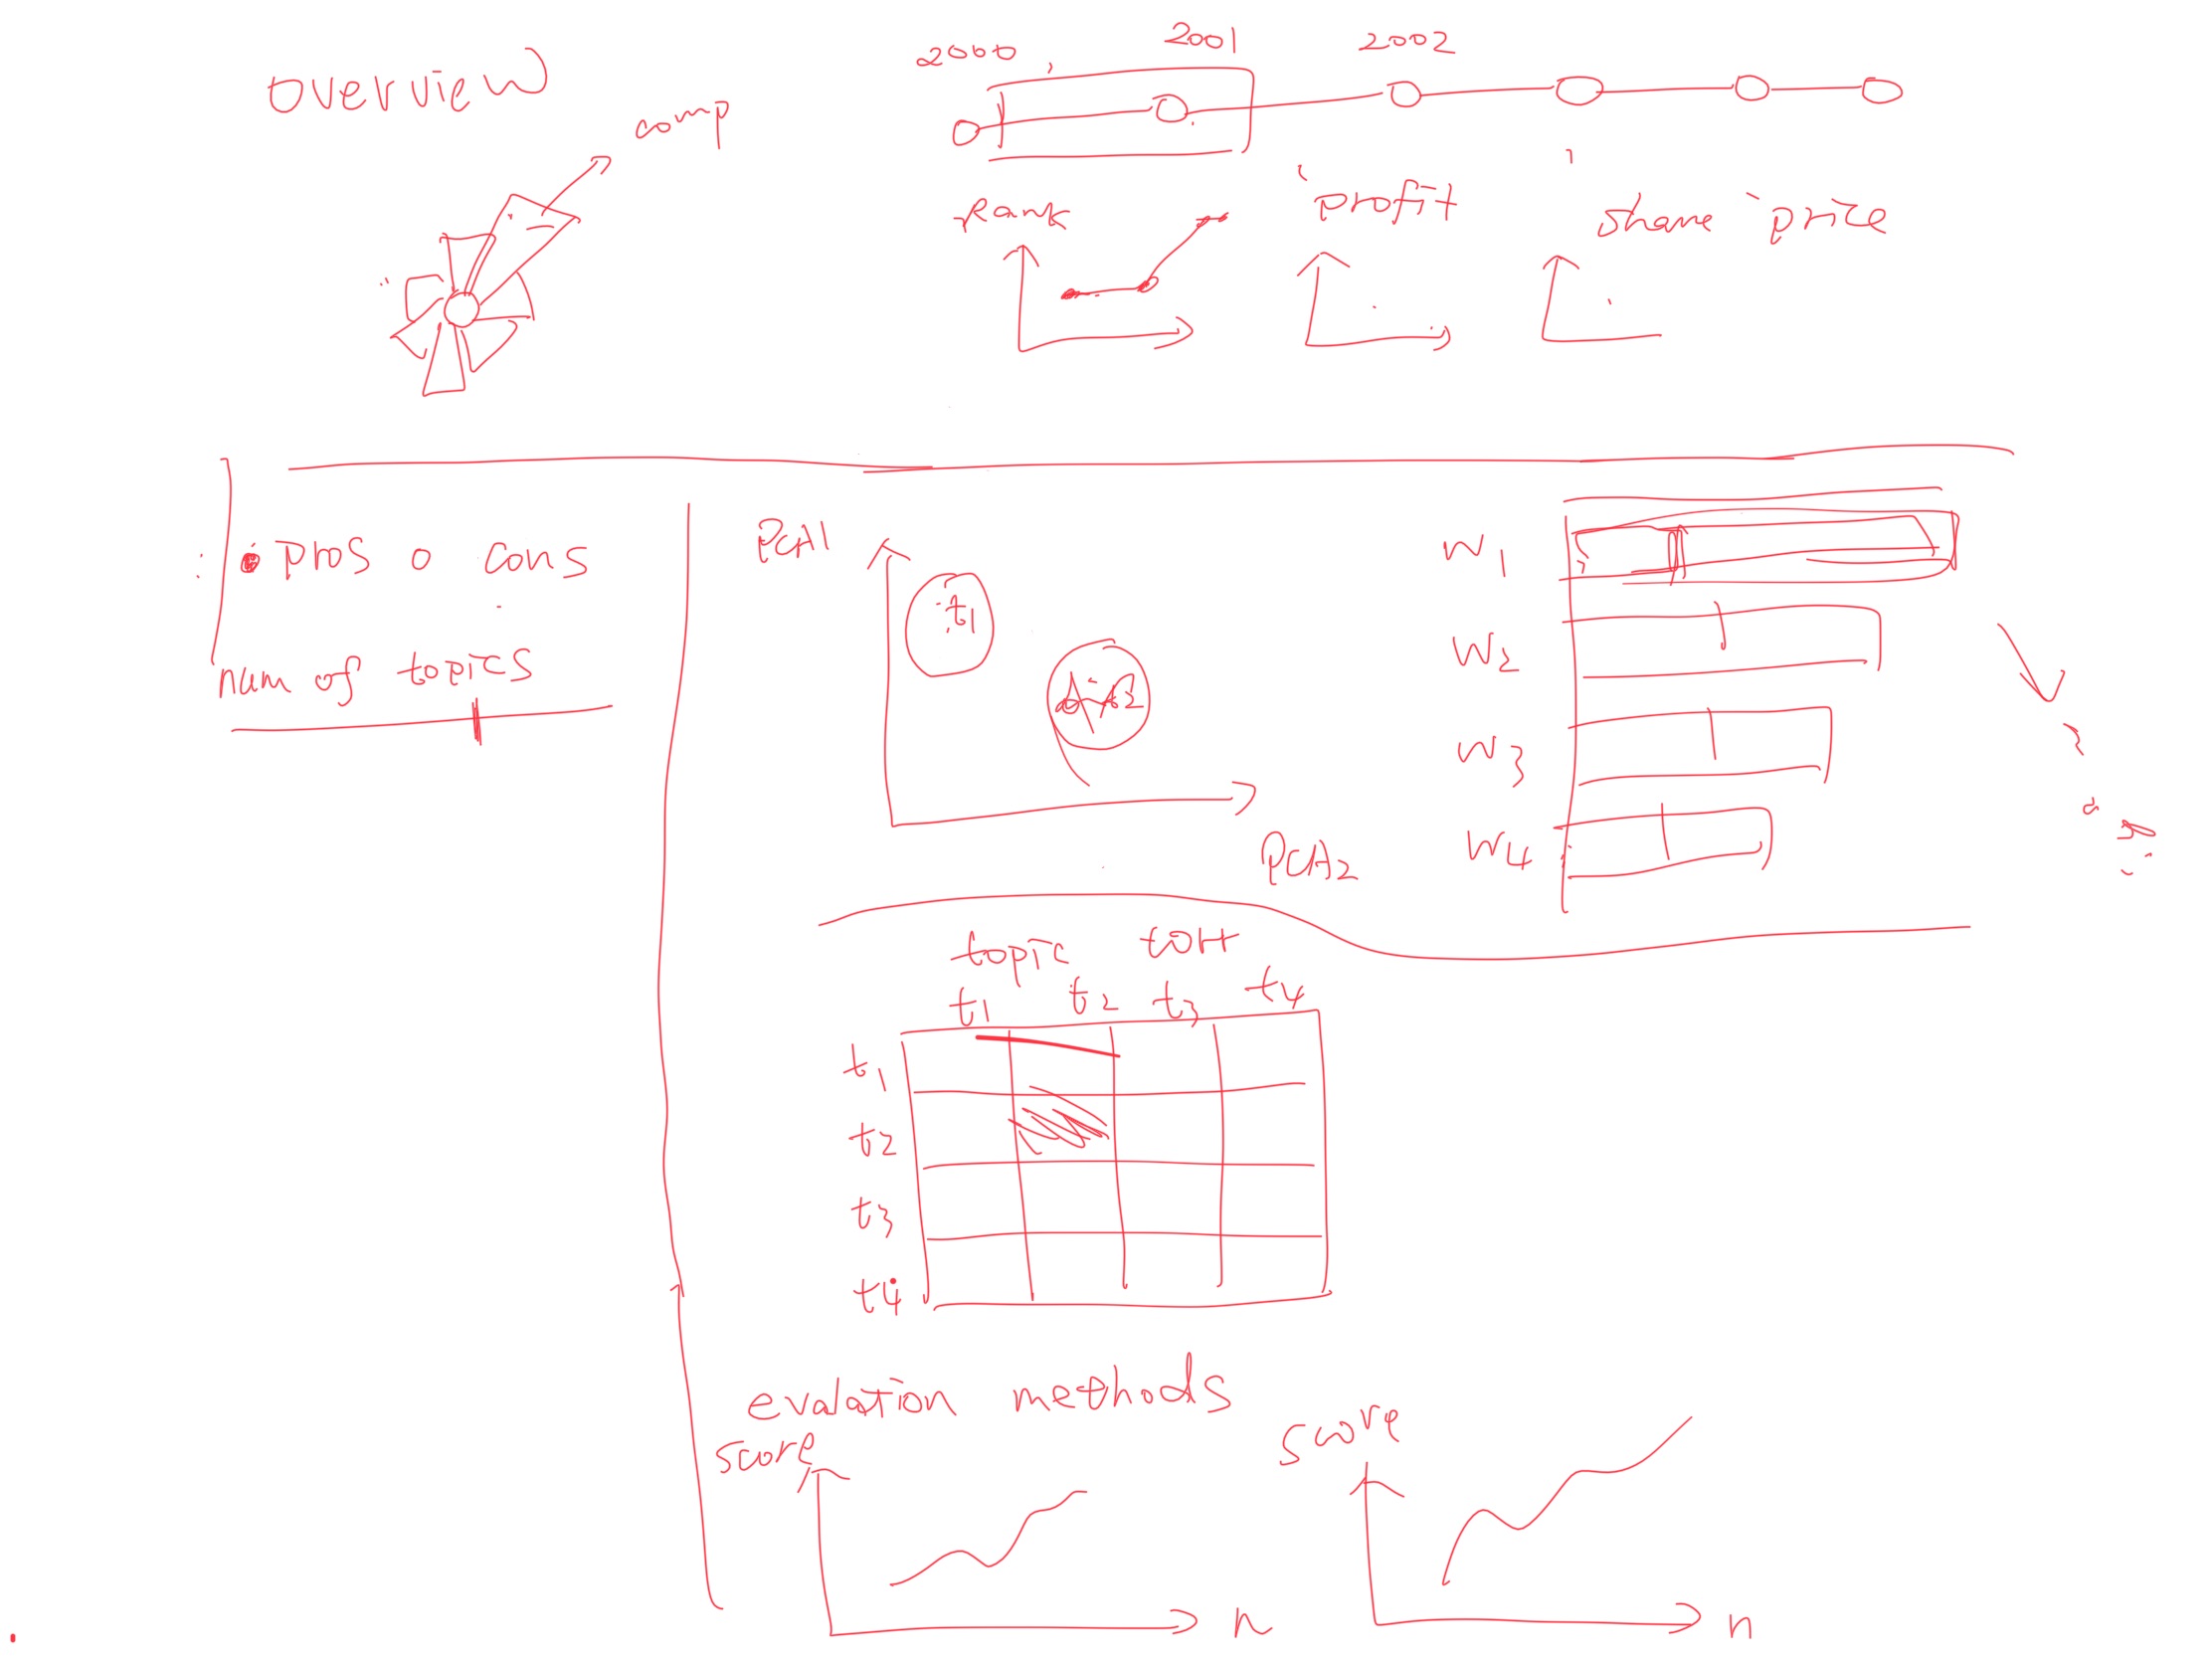 overview
comp
2000 2001 2002
Rank profit share price
pros cons
num of topics
PCA1
t1
PCA2
w1
w2
w3
w4
topic corr
t1 t2 t3 t4
t1
t2
t3
t4
evalation methods
score
n
score
n